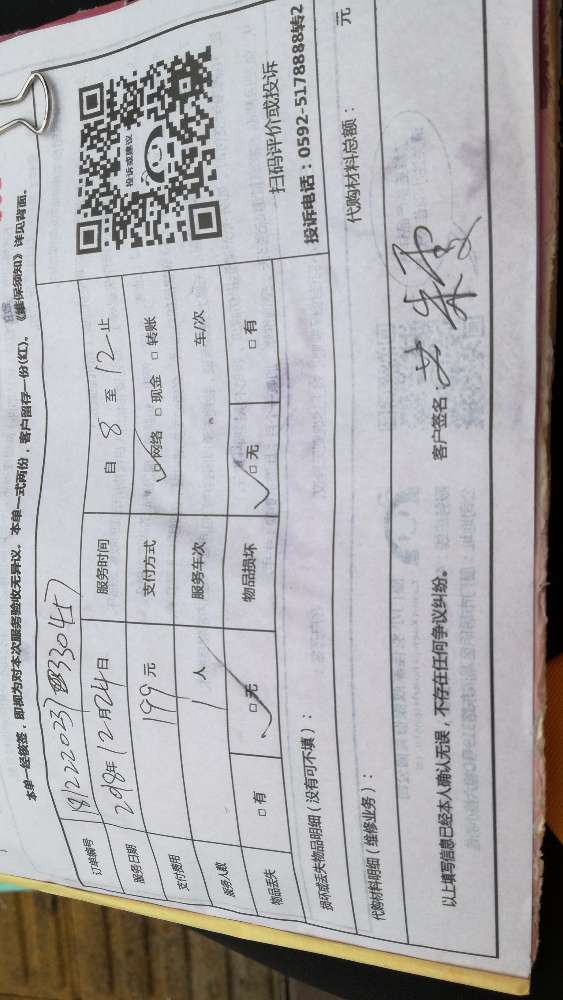 本单一经核签，即视为对本次服务验收无异议。本单一式两份，客户留存一份(红)。《维保须知》详见背面。
订单编号
服务日期 12月24日 服务时间 自 8 至 12 止
支付费用 199 元 支付方式 □网络 □现金 □转账
服务人数 1 人 服务车次 车/次
物品丢失 □有 □无 物品损坏 □无 □有
投诉或建议
扫码评价或投诉
投诉电话：0592-5178888转2
损坏或丢失物品明细（没有可不填）：
代购材料明细（维修业务）： 代购材料总额： 元
以上填写信息已经本人确认无误，不存在任何争议纠纷。 客户签名：